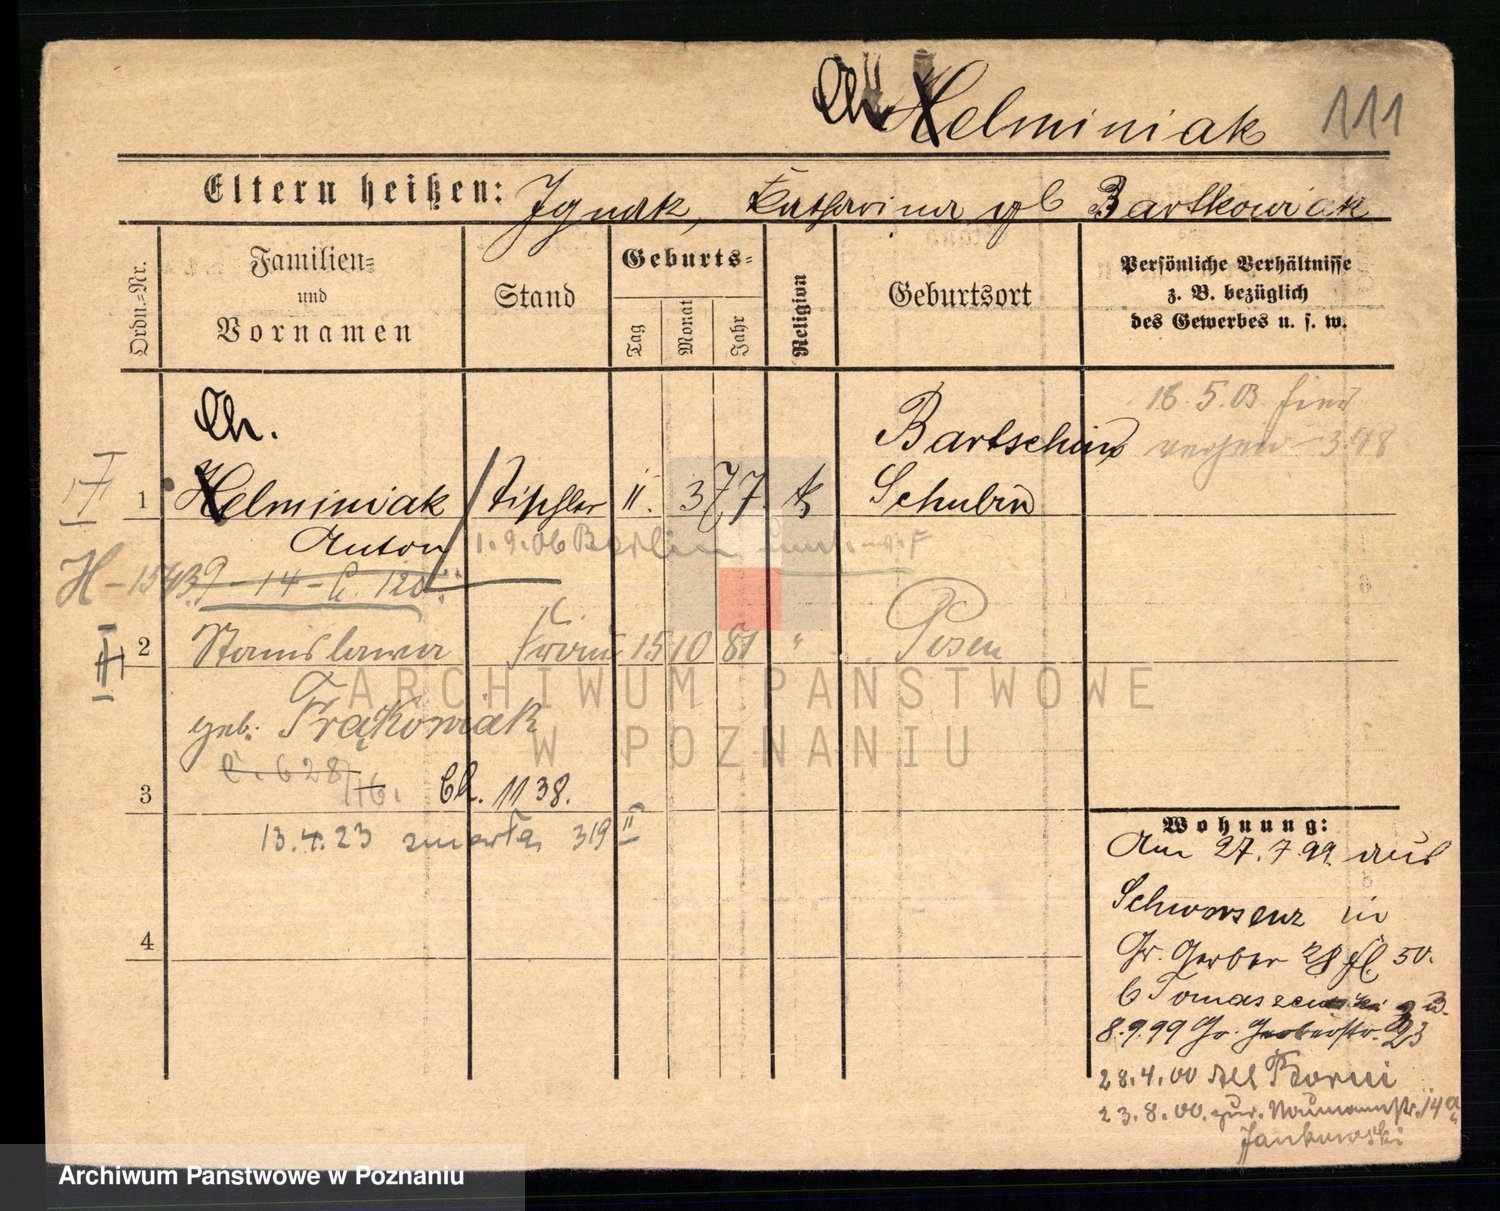 Ch Helminiak 111
Eltern heißen: Ignak, Katharina geb Bartkowiak
Ordn.=Nr.
Familien=
und
Vornamen
Stand
Geburts=
Tag
Monat
Jahr
Religion
Geburtsort
Persönliche Verhältnisse
z. B. bezüglich
des Gewerbes u. s. w.
Ch.
Bartschin
18.5.03
3.98
1 Helminiak Tischler 11. 3 77. k Schubin
Anton 1.9.06 Berlin
H-1543
9-14-C. 120.
2 Stanislawa Frau 15 10 81 " Posen
geb. Frąkowiak
C. 628/16.
3 Ch. 1138.
13.4.23 zmarła 319 II
4
Wohnung:
Am 27.7.99. aus
Schwersenz in
Gr. Gerber 28 fl. 50.
b Tomaszewski
8.9.99 Gr. Gerberstr. 23
28.4.00 Borui
23.8.00. zur. Naumannstr. 14a
Jankowski
ARCHIWUM PAŃSTWOWE
W POZNANIU
Archiwum Państwowe w Poznaniu